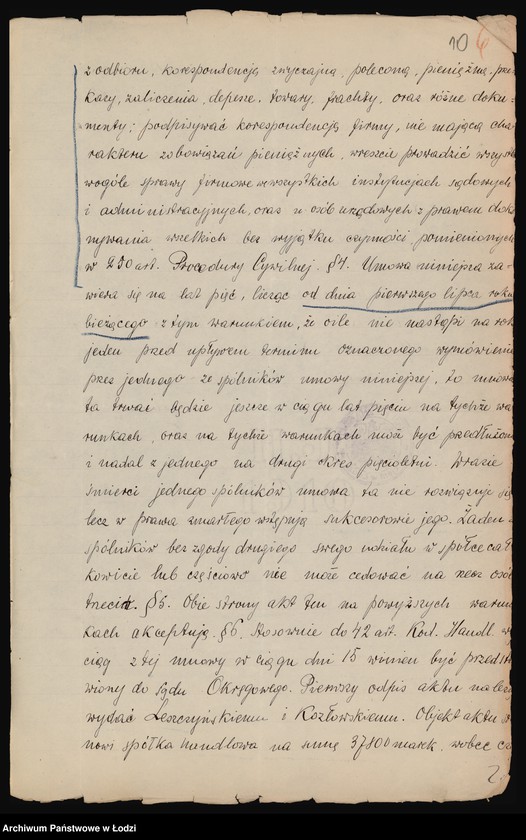 10 6
z odbioru, korespondencją zwyczajną, poleconą, pieniężną, prze-
kazy, zaliczenia, depesze, towary, frachty, oraz różne doku-
menty; podpisywać korespondencją firmy, nie mającą cha-
rakteru zobowiązań pieniężnych, wreszcie prowadzić wszystkie
wogóle sprawy firmowe w wszystkich instytucjach sądowych
i administracyjnych, oraz u osób urzędowych z prawem doko-
nywania wszelkich bez wyjątku czynności pomienionych
w 250 art. Procedury Cywilnej. §4. Umowa niniejsza za-
wiera się na lat pięć, licząc od dnia pierwszego lipca roku
bieżącego z tym warunkiem, że o ile nie nastąpi na rok
jeden przed upływem terminu oznaczonego wymówienie
przez jednego ze spólników umowy niniejszej, to umowa
ta trwać będzie jeszcze w ciągu lat pięciu na tychże wa-
runkach, oraz na tychże warunkach może być przedłużoną
i nadal z jednego na drugi okres pięcioletni. W razie
śmierci jednego spólników umowa ta nie rozwiązuje się
lecz w prawa zmarłego wstępują sukcesorowie jego. Żaden
spólników bez zgody drugiego swego udziału w spółce cał-
kowicie lub częściowo nie może cedować na rzecz osób
trzecich. §5. Obie strony akt ten na powyższych warun-
kach akceptują. §6. Stosownie do 42 art. Kod. Handl. wy-
ciąg z tej umowy w ciągu dni 15 winien być przedsta-
wiony do sądu Okręgowego. Pierwszy odpis aktu należy
wydać Leszczyńskiemu i Kozłowskiemu. Objekt aktu sta-
nowi spółka handlowa na sumę 37800 marek, wobec
2
Archiwum Państwowe w Łodzi